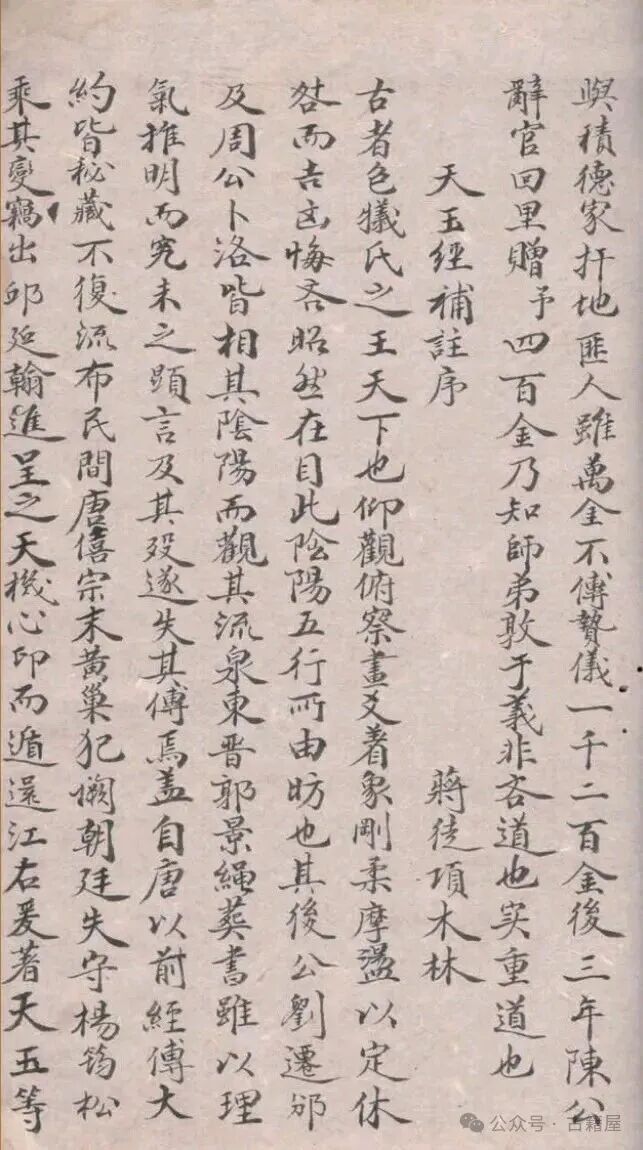 與積德家扞地匪人雖萬金不傳贄儀一千二百金後三年陳公
辭官回里贈予四百金乃知師弟敦于義非吝道也实重道也
天玉經補註序 蔣徒項木林
古者包犧氏之王天下也仰觀俯察畫爻着象剛柔摩盪以定休
咎而吉凶悔吝昭然在目此陰陽五行所由昉也其後公劉遷邠
及周公卜洛皆相其陰陽而觀其流泉東晋郭景繩葬書雖以理
氣推明而究未之顕言及其殁遂失其傳焉盖自唐以前經傳大
約皆秘藏不復流布民間唐僖宗末黄巢犯闕朝廷失守楊筠松
乘其變竊出邱延翰進呈之天機心印而遁還江右爰著天五等
公众号·古籍屋